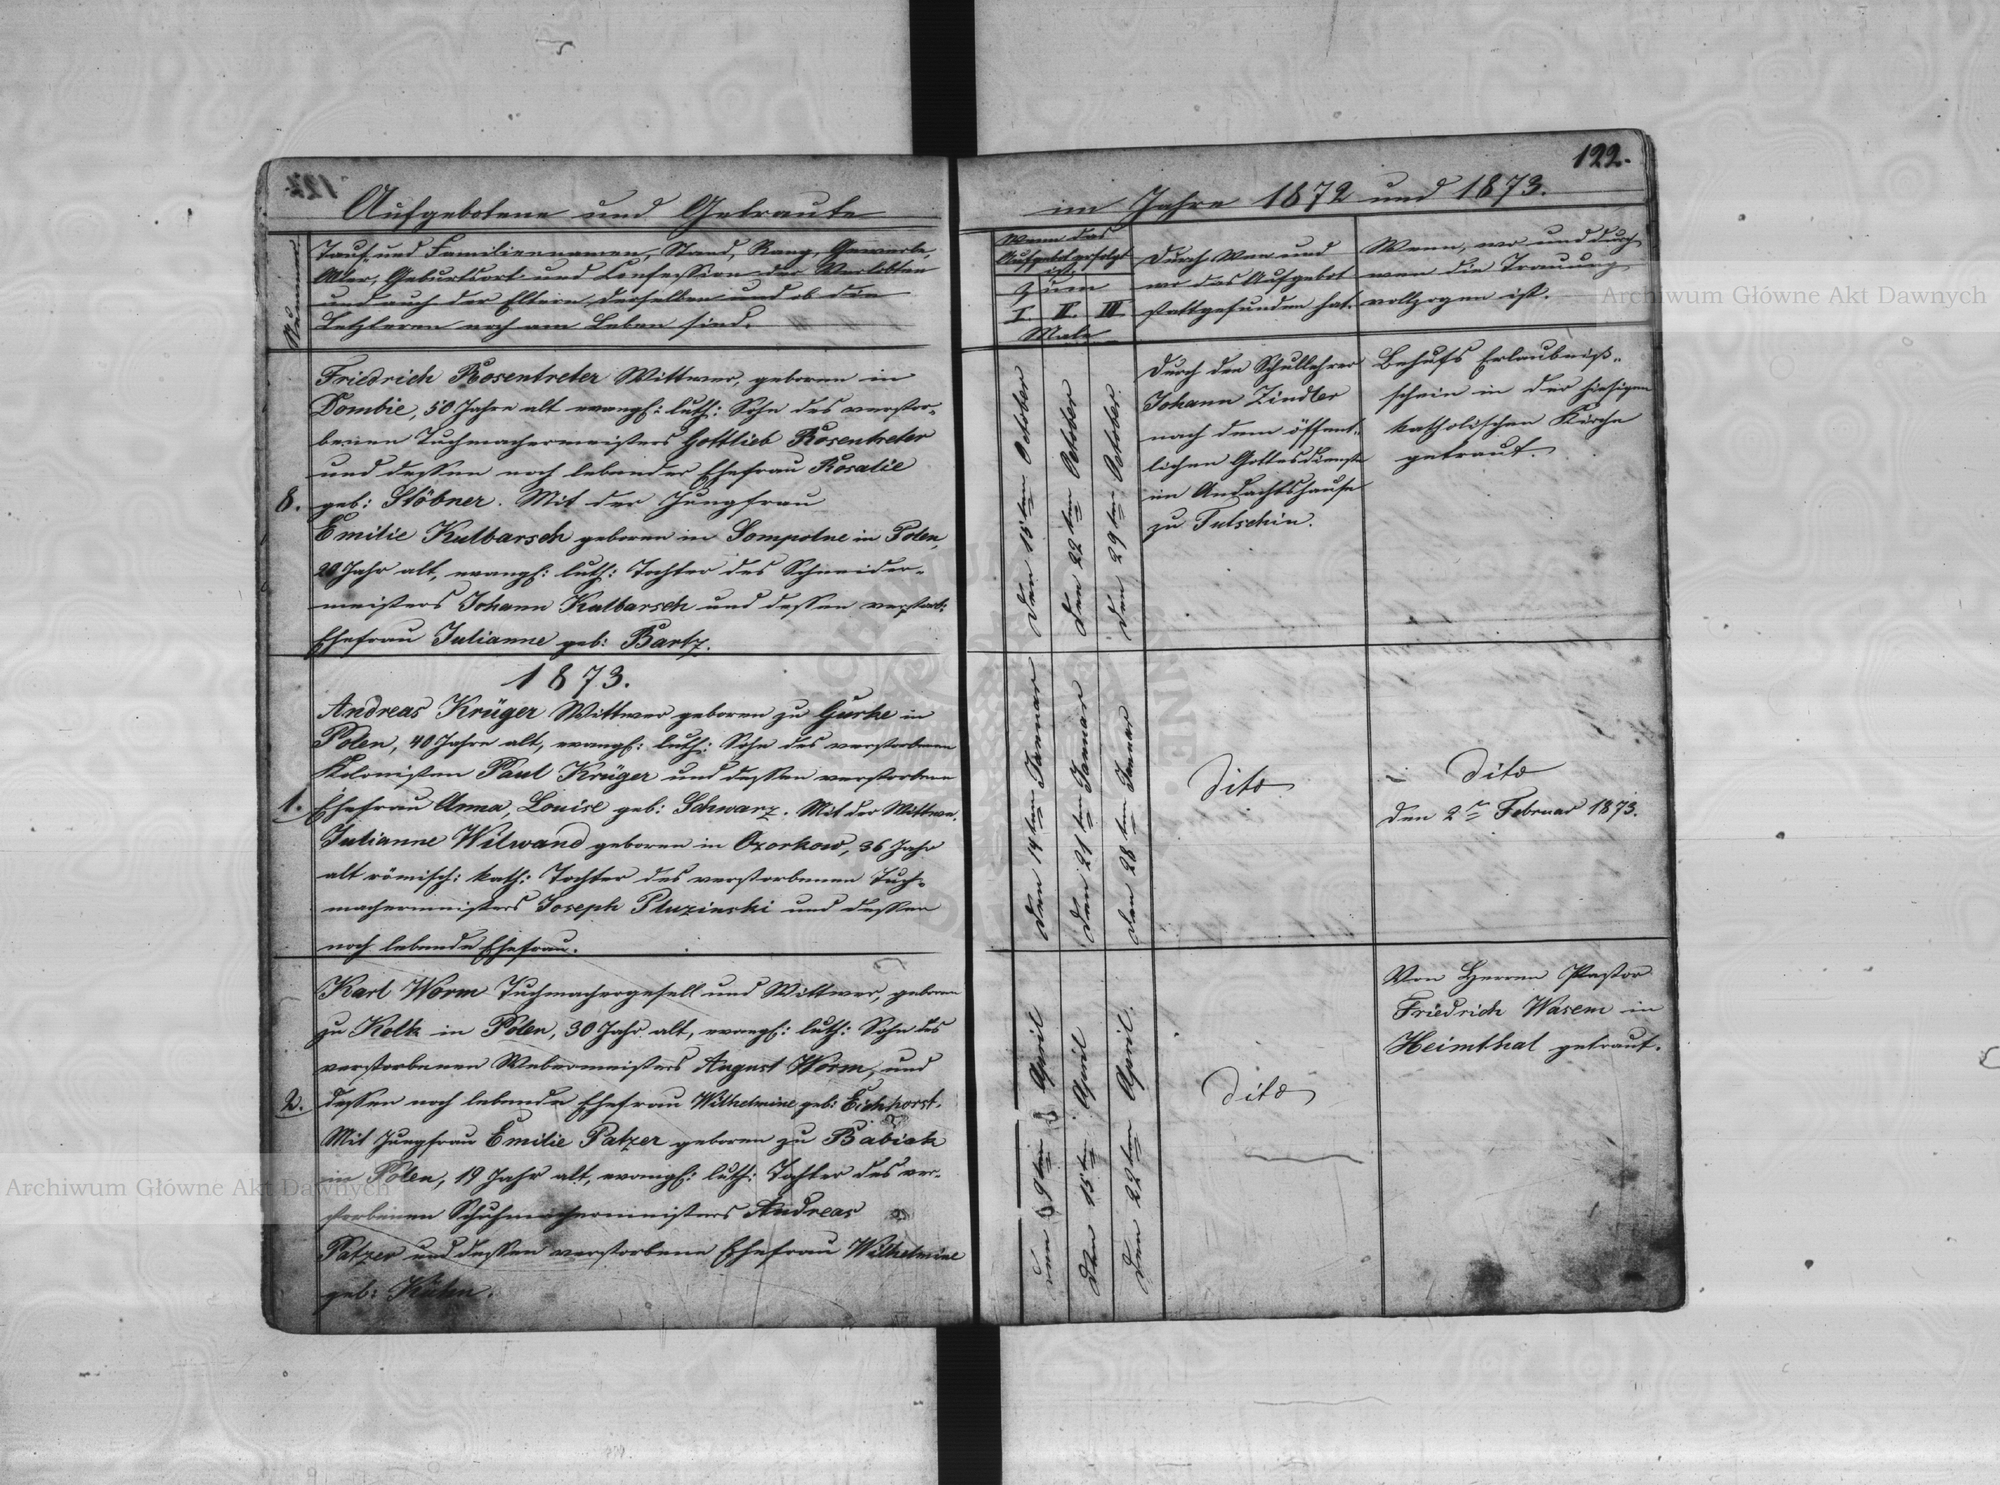 122.
Aufgebotene und Getraute
im Jahre 1872 und 1873.
Nummer
Tauf und Familiennamen, Stand, Rang, Gewerbe,
Alter, Geburtsort und Confession der Verlobten
und auch der Eltern derselben und ob die
Letzteren noch am Leben sind.
Wenn das
Aufgebot erfolgt
ist,
zum
I. II. III.
Male
Durch Wen und
wo das Aufgebot
stattgefunden hat.
Wann, wo und durch
wen die Trauung
vollzogen ist.
8.
Friedrich Rosentreter Wittwer, geboren in
Dombie, 50 Jahre alt evangl: luth: Sohn des verstor-
benen Tuchmachermeisters Gottlieb Rosentreter
und dessen noch lebender Ehefrau Rosalie
geb: Stöbner. Mit der Jungfrau
Emilie Kulbarsch geboren in Sompolne in Polen,
20 Jahr alt, evangl: luth: Tochter des Schneider-
meisters Johann Kulbarsch und dessen verstorb:
Ehefrau Julianne geb: Bartz.
den 15ten October
den 22ten October
den 29ten October.
Durch den Schullehrer
Johann Zindler
nach dem öffent-
lichen Gottesdienste
im Andachtshause
zu Tutschin.
Behufs Erlaubniß-
schein in der hiesigen
katholischen Kirche
getraut.
1873.
1.
Andreas Krüger Wittwer geboren zu Gurke in
Polen, 40 Jahre alt, evangl: luth: Sohn des verstorbenen
Kolonisten Paul Krüger und dessen verstorbene
Ehefrau Anna, Louise geb: Schwarz. Mit der Wittwe,
Julianne Wilwand geboren in Ozorkow, 36 Jahr
alt römisch: kath: Tochter des verstorbenen Tuch-
machermeisters Joseph Pluzinski und dessen
noch lebende Ehefrau.
den 14ten Januar
den 21ten Januar
den 28ten Januar
Dito
Dito
den 2n Februar 1873.
2.
Karl Worm Tuchmachergesell und Wittwer, geboren
zu Kolk in Polen, 30 Jahr alt, evangl: luth: Sohn des
verstorbenen Webermeisters August Worm, und
dessen noch lebende Ehefrau Wilhelmine geb: Eichhorst.
Mit Jungfrau Emilie Patzer geboren zu Babiak
in Polen, 19 Jahr alt, evangl: luth: Tochter des ver-
storbenen Schuhmachermeisters Andreas
Patzer und dessen verstorbene Ehefrau Wilhelmine
geb: Kühn.
den 9ten April
den 15ten April
den 22ten April.
Dito
Von Herren Pastor
Friedrich Wasem in
Heimthal getraut.
Archiwum Główne Akt Dawnych
Archiwum Główne Akt Dawnych